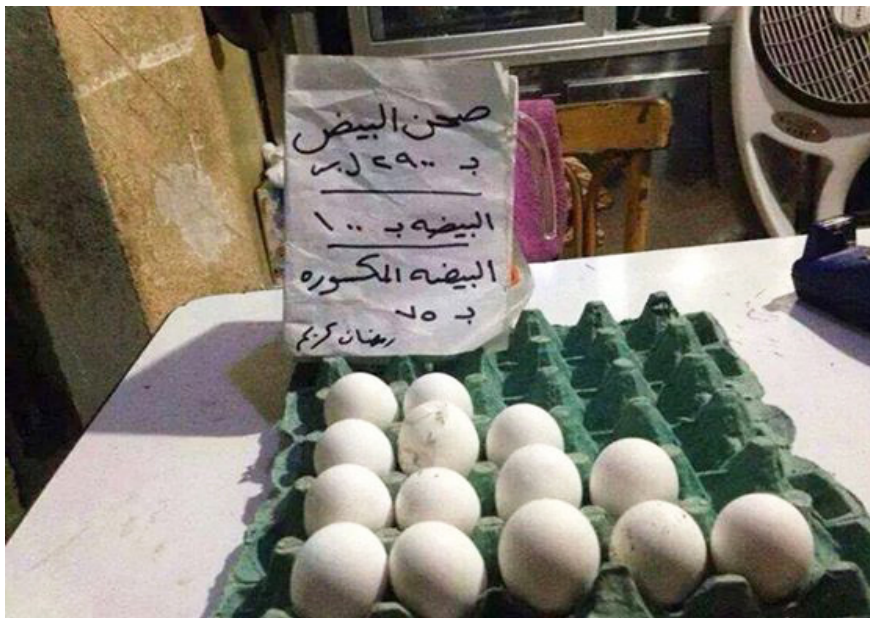 صحن البيض
بـ ٢٩٠٠ ل.س
البيضه بـ ١٠٠
البيضه المكسوره
بـ ٧٥
رمضان كريم